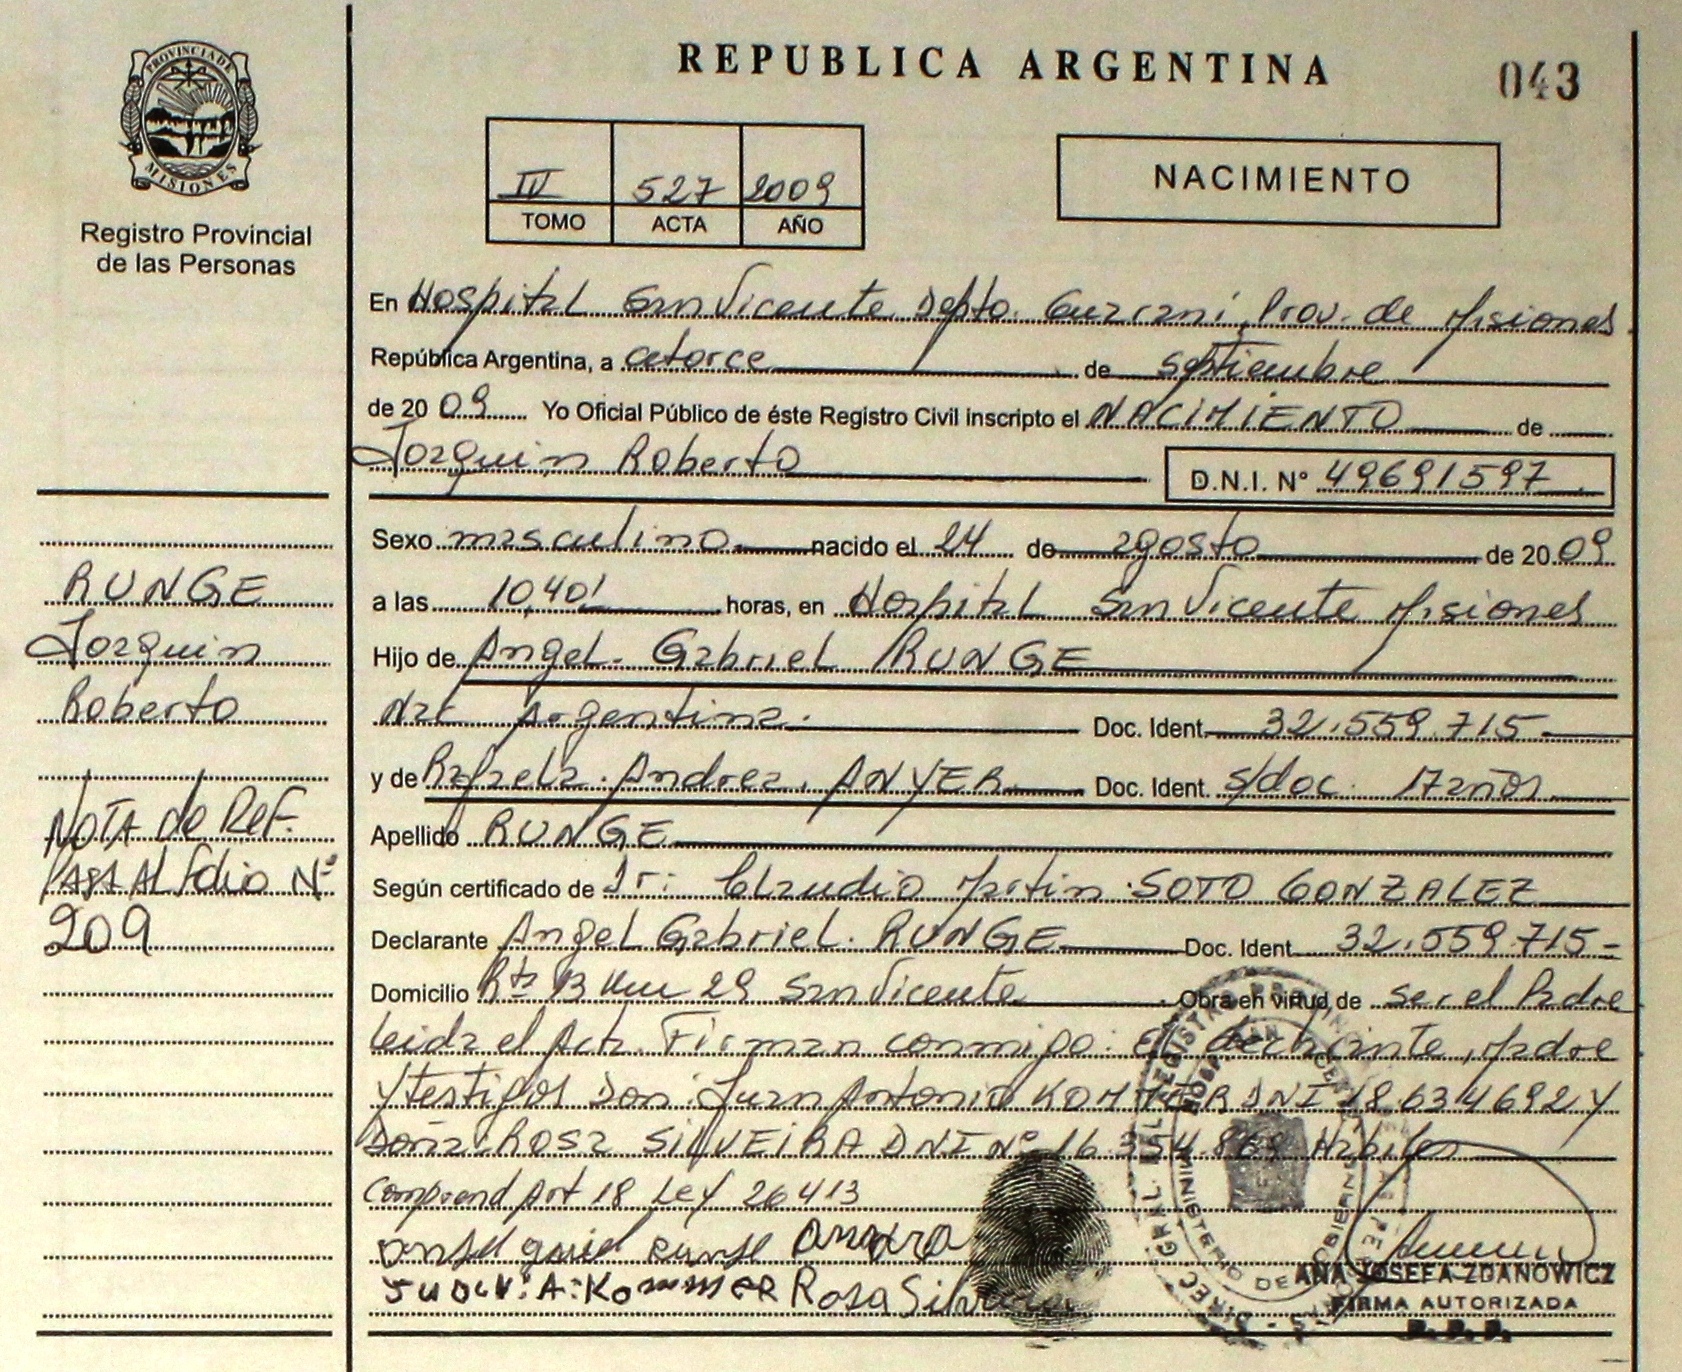 REPUBLICA ARGENTINA
043
PROVINCIA DE MISIONES
Registro Provincial
de las Personas
IV 527 2009
TOMO ACTA AÑO
NACIMIENTO
En Hospital San Vicente Depto. Guaraní, Prov. de Misiones
República Argentina, a catorce de septiembre
de 2009 Yo Oficial Público de éste Registro Civil inscripto el NACIMIENTO de
Joaquin Roberto D.N.I. N° 49691597
Sexo masculino nacido el 24 de agosto de 2009
a las 10,40' horas, en Hospital San Vicente Misiones
Hijo de Angel Gabriel RUNGE
Nac Argentina. Doc. Ident. 32.559.715
y de Rafaela Andrea ANYER Doc. Ident. s/doc. 17 años
Apellido RUNGE
Según certificado de Dr: Claudio Martin SOTO GONZALEZ
Declarante Angel Gabriel RUNGE Doc. Ident. 32.559.715
Domicilio Rta 13 Km 29 San Vicente Obra en virtud de ser el Padre
leida el Acta. Firman conmigo: el declarante, Madre
y testigos Don: Juan Antonio KOMMER DNI 18.634692 y
Doña: Rosa SILVEIRA DNI N° 16.354.869 Habiles
Comprend Art 18 Ley 26413
Runge
A. KOMMER Rosa Silveira
ANA JOSEFA ZDANOWICZ
FIRMA AUTORIZADA
RUNGE
Joaquin
Roberto
NOTA de REF.
PASA AL folio N°
209